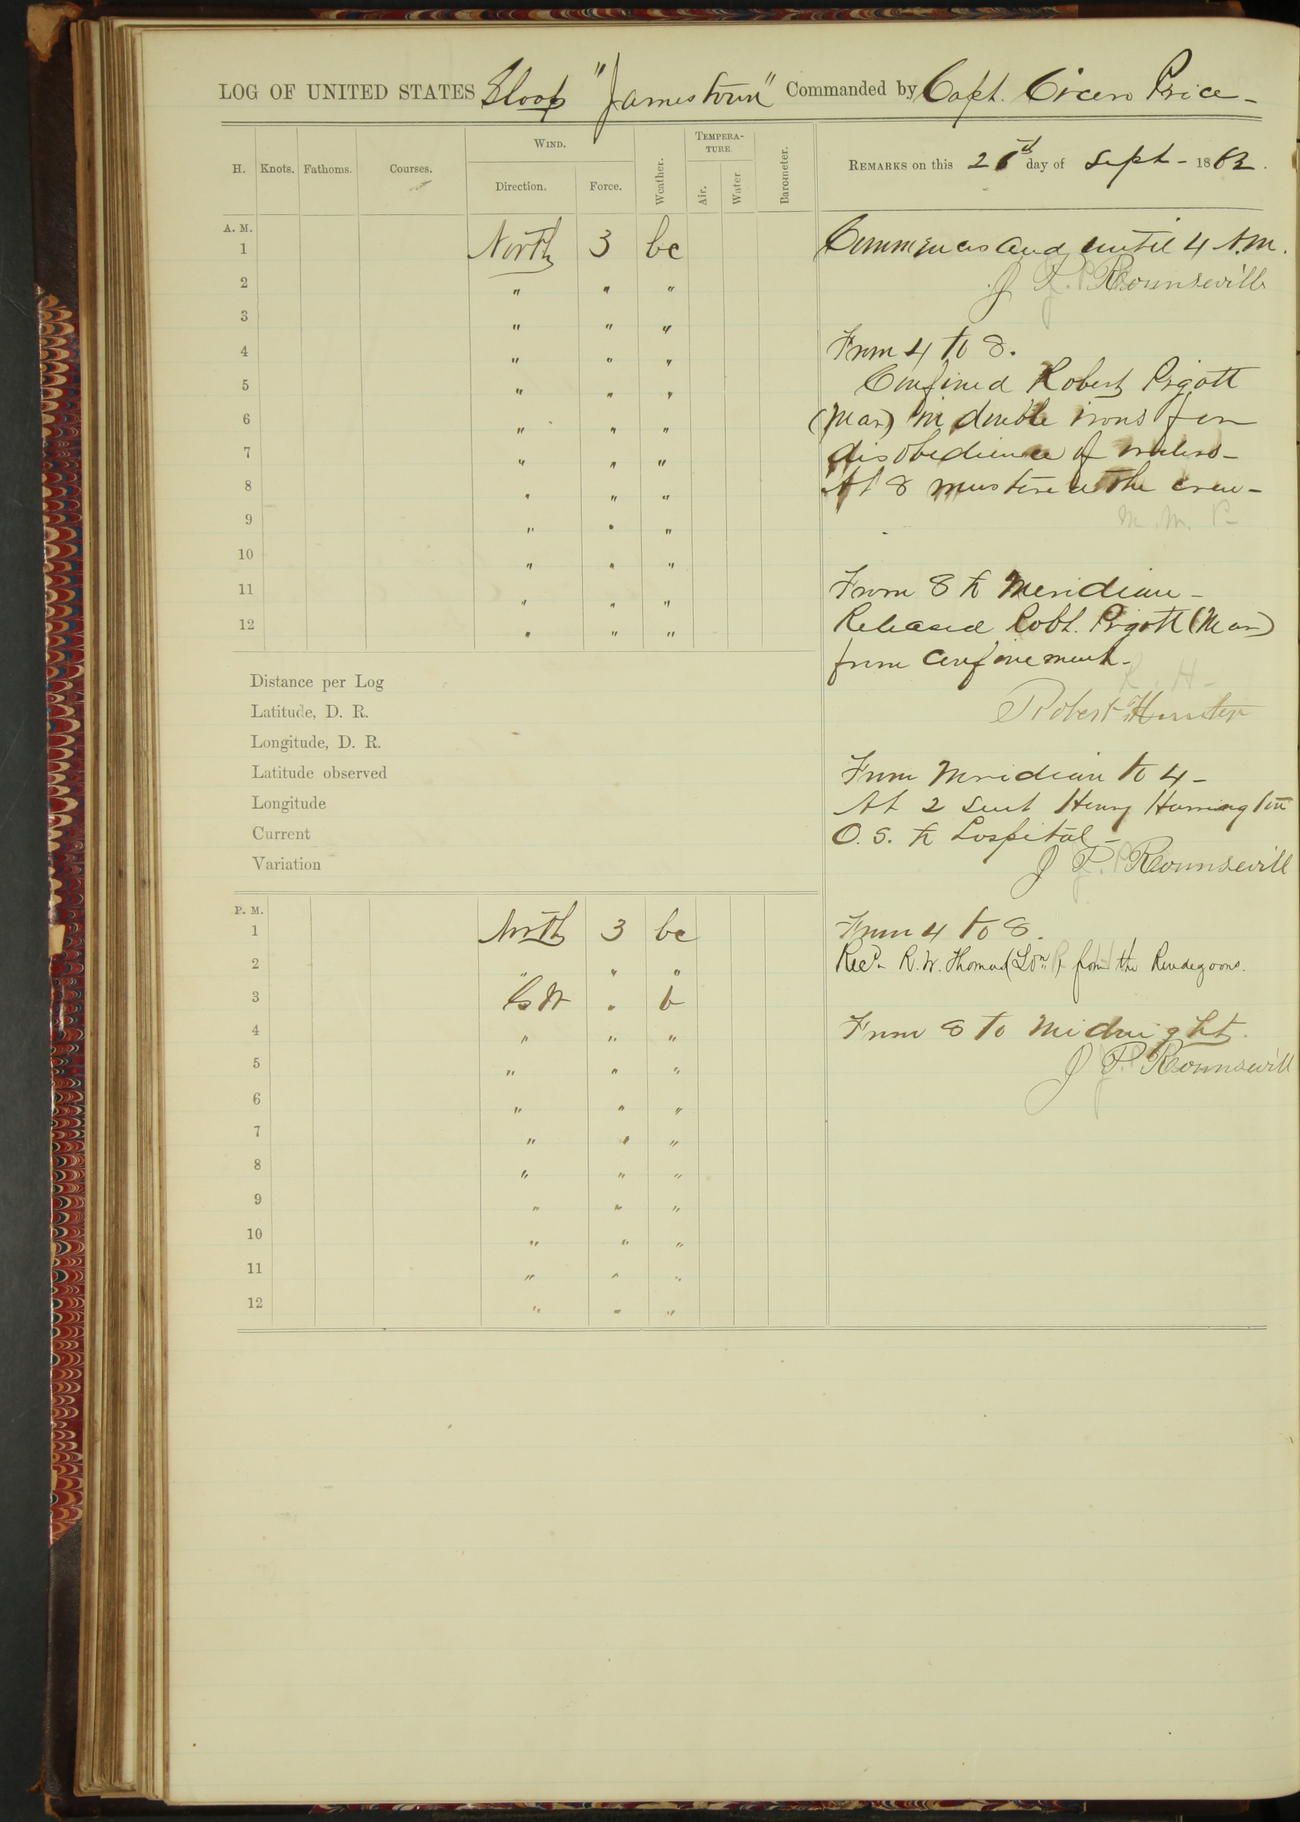 LOG OF UNITED STATES Sloop "Jamestown" Commanded by Capt. Cicero Price -
H. Knots. Fathoms. Courses. Wind. Direction. Force. Weather. Tempera-ture. Air. Water. Barometer.
Remarks on this day of Sept - 1862.
A. M.
1 North 3 bc
2 " " "
3 " " "
4 " " "
5 " " "
6 " " "
7 " " "
8 " " "
9 " " "
10 " " "
11 " " "
12 " " "
Commences and until 4 A.M.
J P. Rounsevill
From 4 to 8.
Confined Robert Pigott
(Mar) in double irons for
disobedience of orders -
At 8 mustered the crew -
M. M. P-
From 8 to Meridian -
Released Robt. Pigott (Mar)
from confinement -
R. H-
Robert Hunter
From Meridian to 4 -
At 2 sent Henry Harrington
O. S. to Hospital -
J P. Rounsevill
From 4 to 8.
Recd. R. W. Thomas from the
From 8 to Midnight.
J P. Rounsevill
Distance per Log
Latitude, D. R.
Longitude, D. R.
Latitude observed
Longitude
Current
Variation
P. M.
1 North 3 bc
2 " " "
3 " b
4 " " "
5 " " "
6 " " "
7 " " "
8 " " "
9 " " "
10 " " "
11 " " "
12 " " "